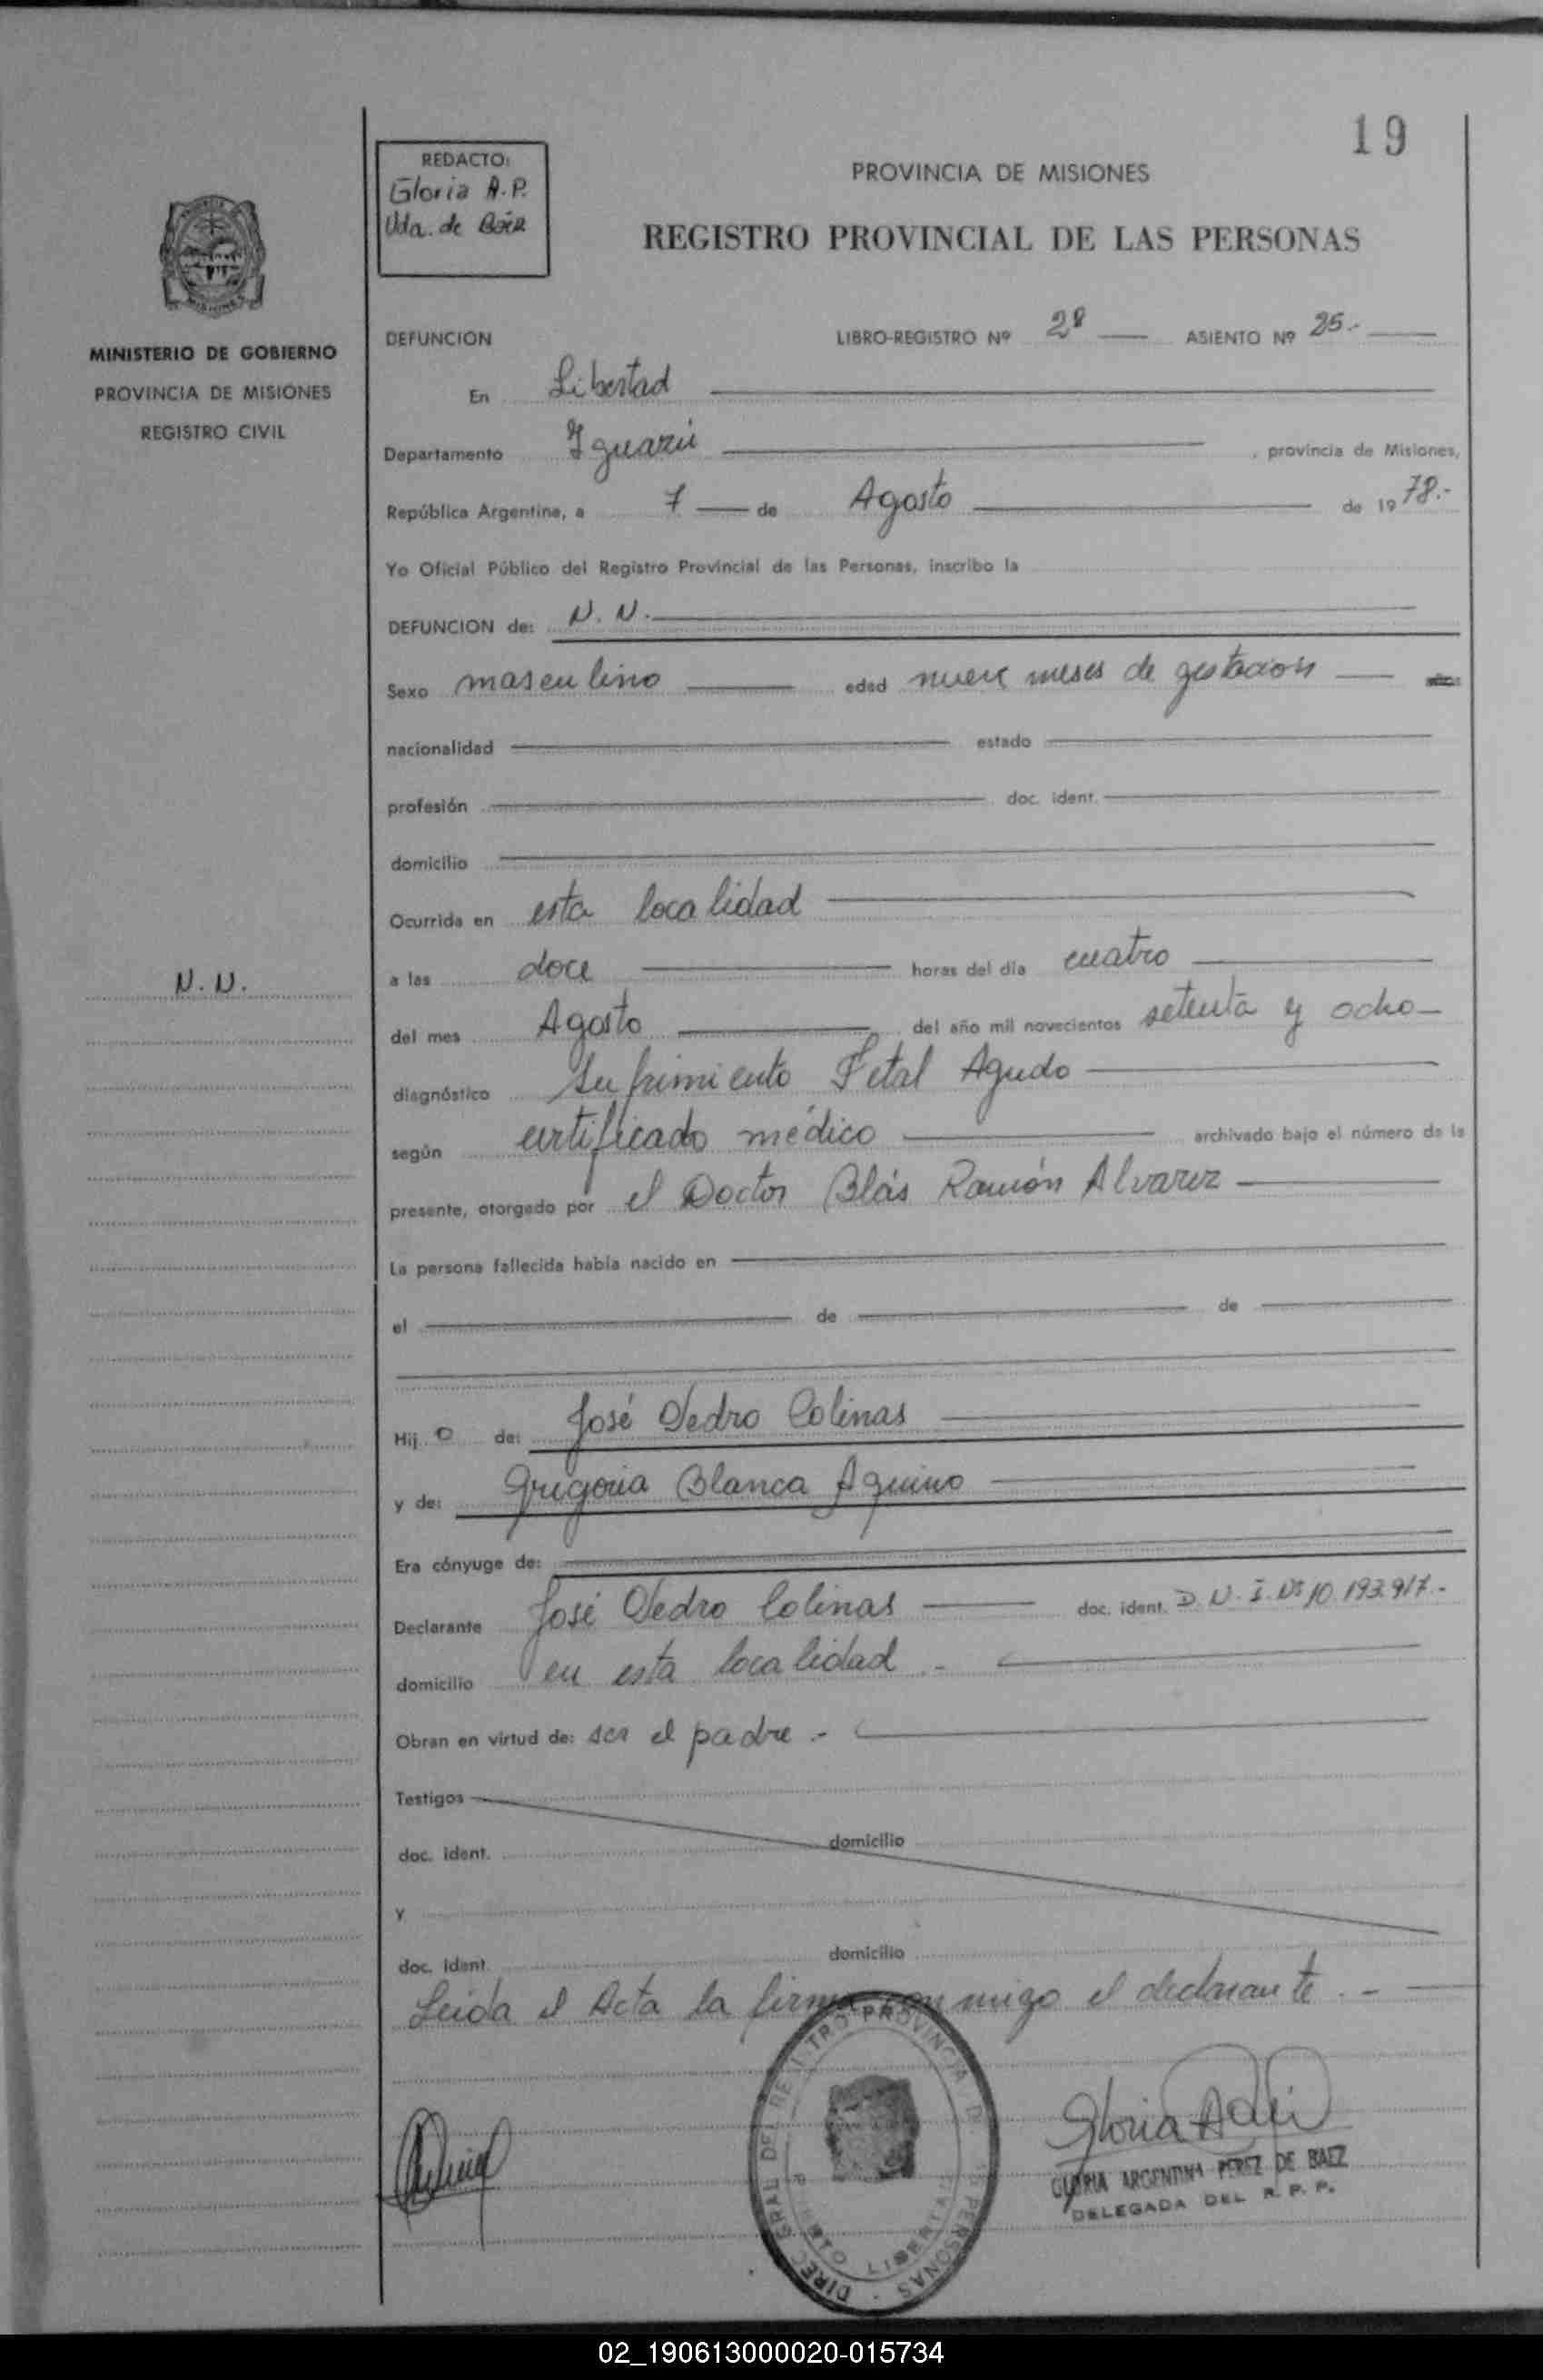 19
REDACTO:
Gloria A.P.
Vda. de Báez
PROVINCIA DE MISIONES
REGISTRO PROVINCIAL DE LAS PERSONAS
MINISTERIO DE GOBIERNO
PROVINCIA DE MISIONES
REGISTRO CIVIL
DEFUNCION LIBRO-REGISTRO Nº 2º ASIENTO Nº 25.-
En Libertad
Departamento Iguazú , provincia de Misiones,
República Argentina, a 7 de Agosto de 1978.-
Yo Oficial Público del Registro Provincial de las Personas, inscribo la
DEFUNCION de: N. N.
Sexo masculino edad nueve meses de gestación
nacionalidad estado
profesión doc. ident.
domicilio
Ocurrida en esta localidad
N. N.
a las doce horas del día cuatro
del mes Agosto del año mil novecientos setenta y ocho
diagnóstico Sufrimiento Fetal Agudo
según certificado médico archivado bajo el número de la
presente, otorgado por el Doctor Blás Ramón Alvarez
La persona fallecida había nacido en
el de de
Hijo de: José Pedro Colinas
y de: Gregoria Blanca Aquino
Era cónyuge de:
Declarante José Pedro Colinas doc. ident. D.N.I. Nº 10.193.917.-
domicilio en esta localidad.-
Obran en virtud de: ser el padre.-
Testigos
doc. ident. domicilio
y
doc. ident. domicilio
Leida el Acta la firma conmigo el declarante.-
DIREC. GRAL. DEL REGISTRO PROVINCIAL DE LAS PERSONAS
PUERTO LIBERTAD
GLORIA ARGENTINA PEREZ DE BAEZ
DELEGADA DEL R. P. P.
02_190613000020-015734